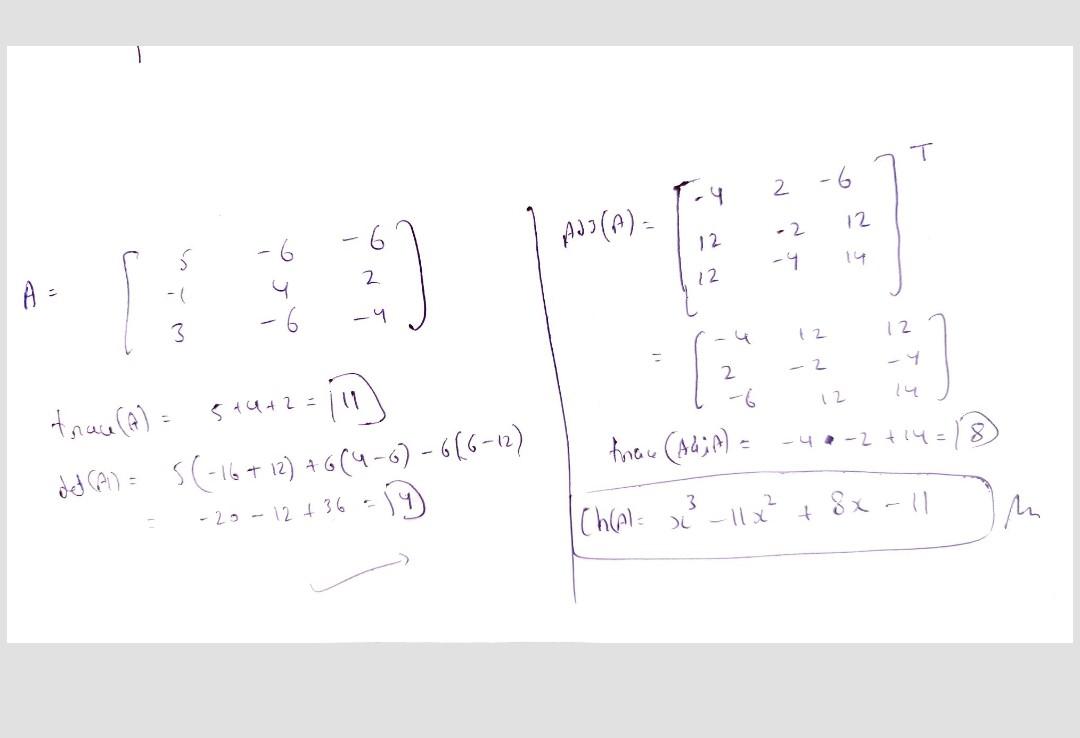 A = [ 5 -6 -6
-1 4 2
3 -6 -4 ]
trace(A) = 5+4+2 = 11
det(A) = 5(-16+12) +6(4-6) -6(6-12)
= -20 - 12 + 36 = 4
Adj(A) = [ -4 2 -6
12 -2 12
12 -4 14 ]ᵀ
= [ -4 12 12
2 -2 -4
-6 12 14 ]
trace(Adj A) = -4 -2 +14 = 8
Ch(A) = x³ - 11x² + 8x - 11